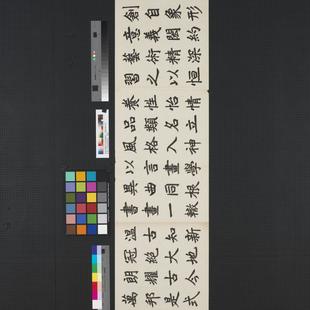 形約深恒情立神學根轍新地今式
象闊精以怡名入畫同一知大古是
自義術之性顯格言曲畫古絕耀邦
創意藝習養品以風異書溫冠朗萬